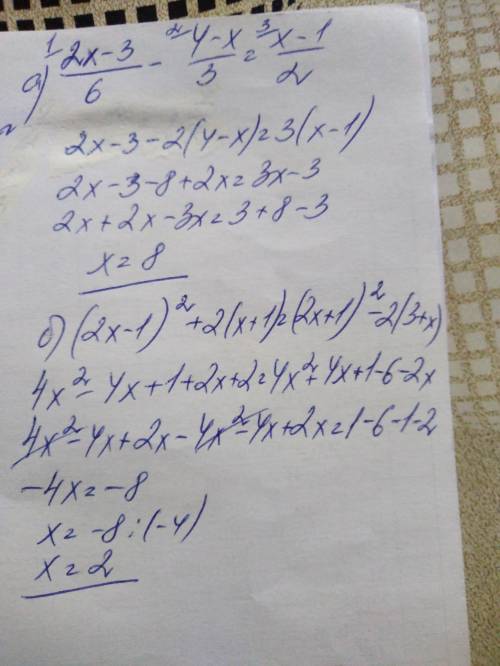 а) ¹ (2x-3)/6 - ² (4-x)/3 = ³ (x-1)/2
2x-3-2(4-x)=3(x-1)
2x-3-8+2x=3x-3
2x+2x-3x=3+8-3
x=8
б) (2x-1)²+2(x+1)=(2x+1)²-2(3+x)
4x²-4x+1+2x+2=4x²+4x+1-6-2x
4x²-4x+2x-4x²-4x+2x=1-6-1-2
-4x=-8
x=-8:(-4)
x=2